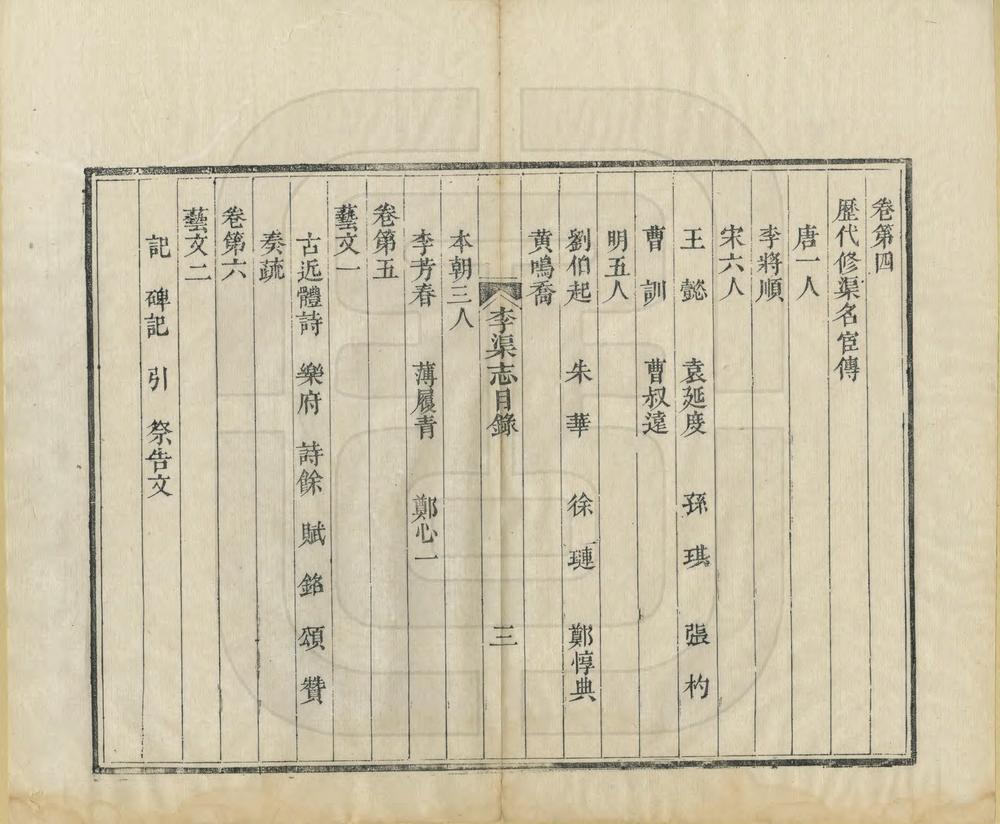 卷第四
歷代修渠名宦傳
唐一人
李將順
宋六人
王懿 袁延度 孫琪 張杓
曹訓 曹叔遠
明五人
劉伯起 朱華 徐璉 鄭惇典
黃鳴喬
李渠志目錄 三
本朝三人
李芳春 薄履青 鄭心一
卷第五
藝文一
古近體詩 樂府 詩餘 賦 銘 頌 贊
奏疏
卷第六
藝文二
記 碑記 引 祭告文